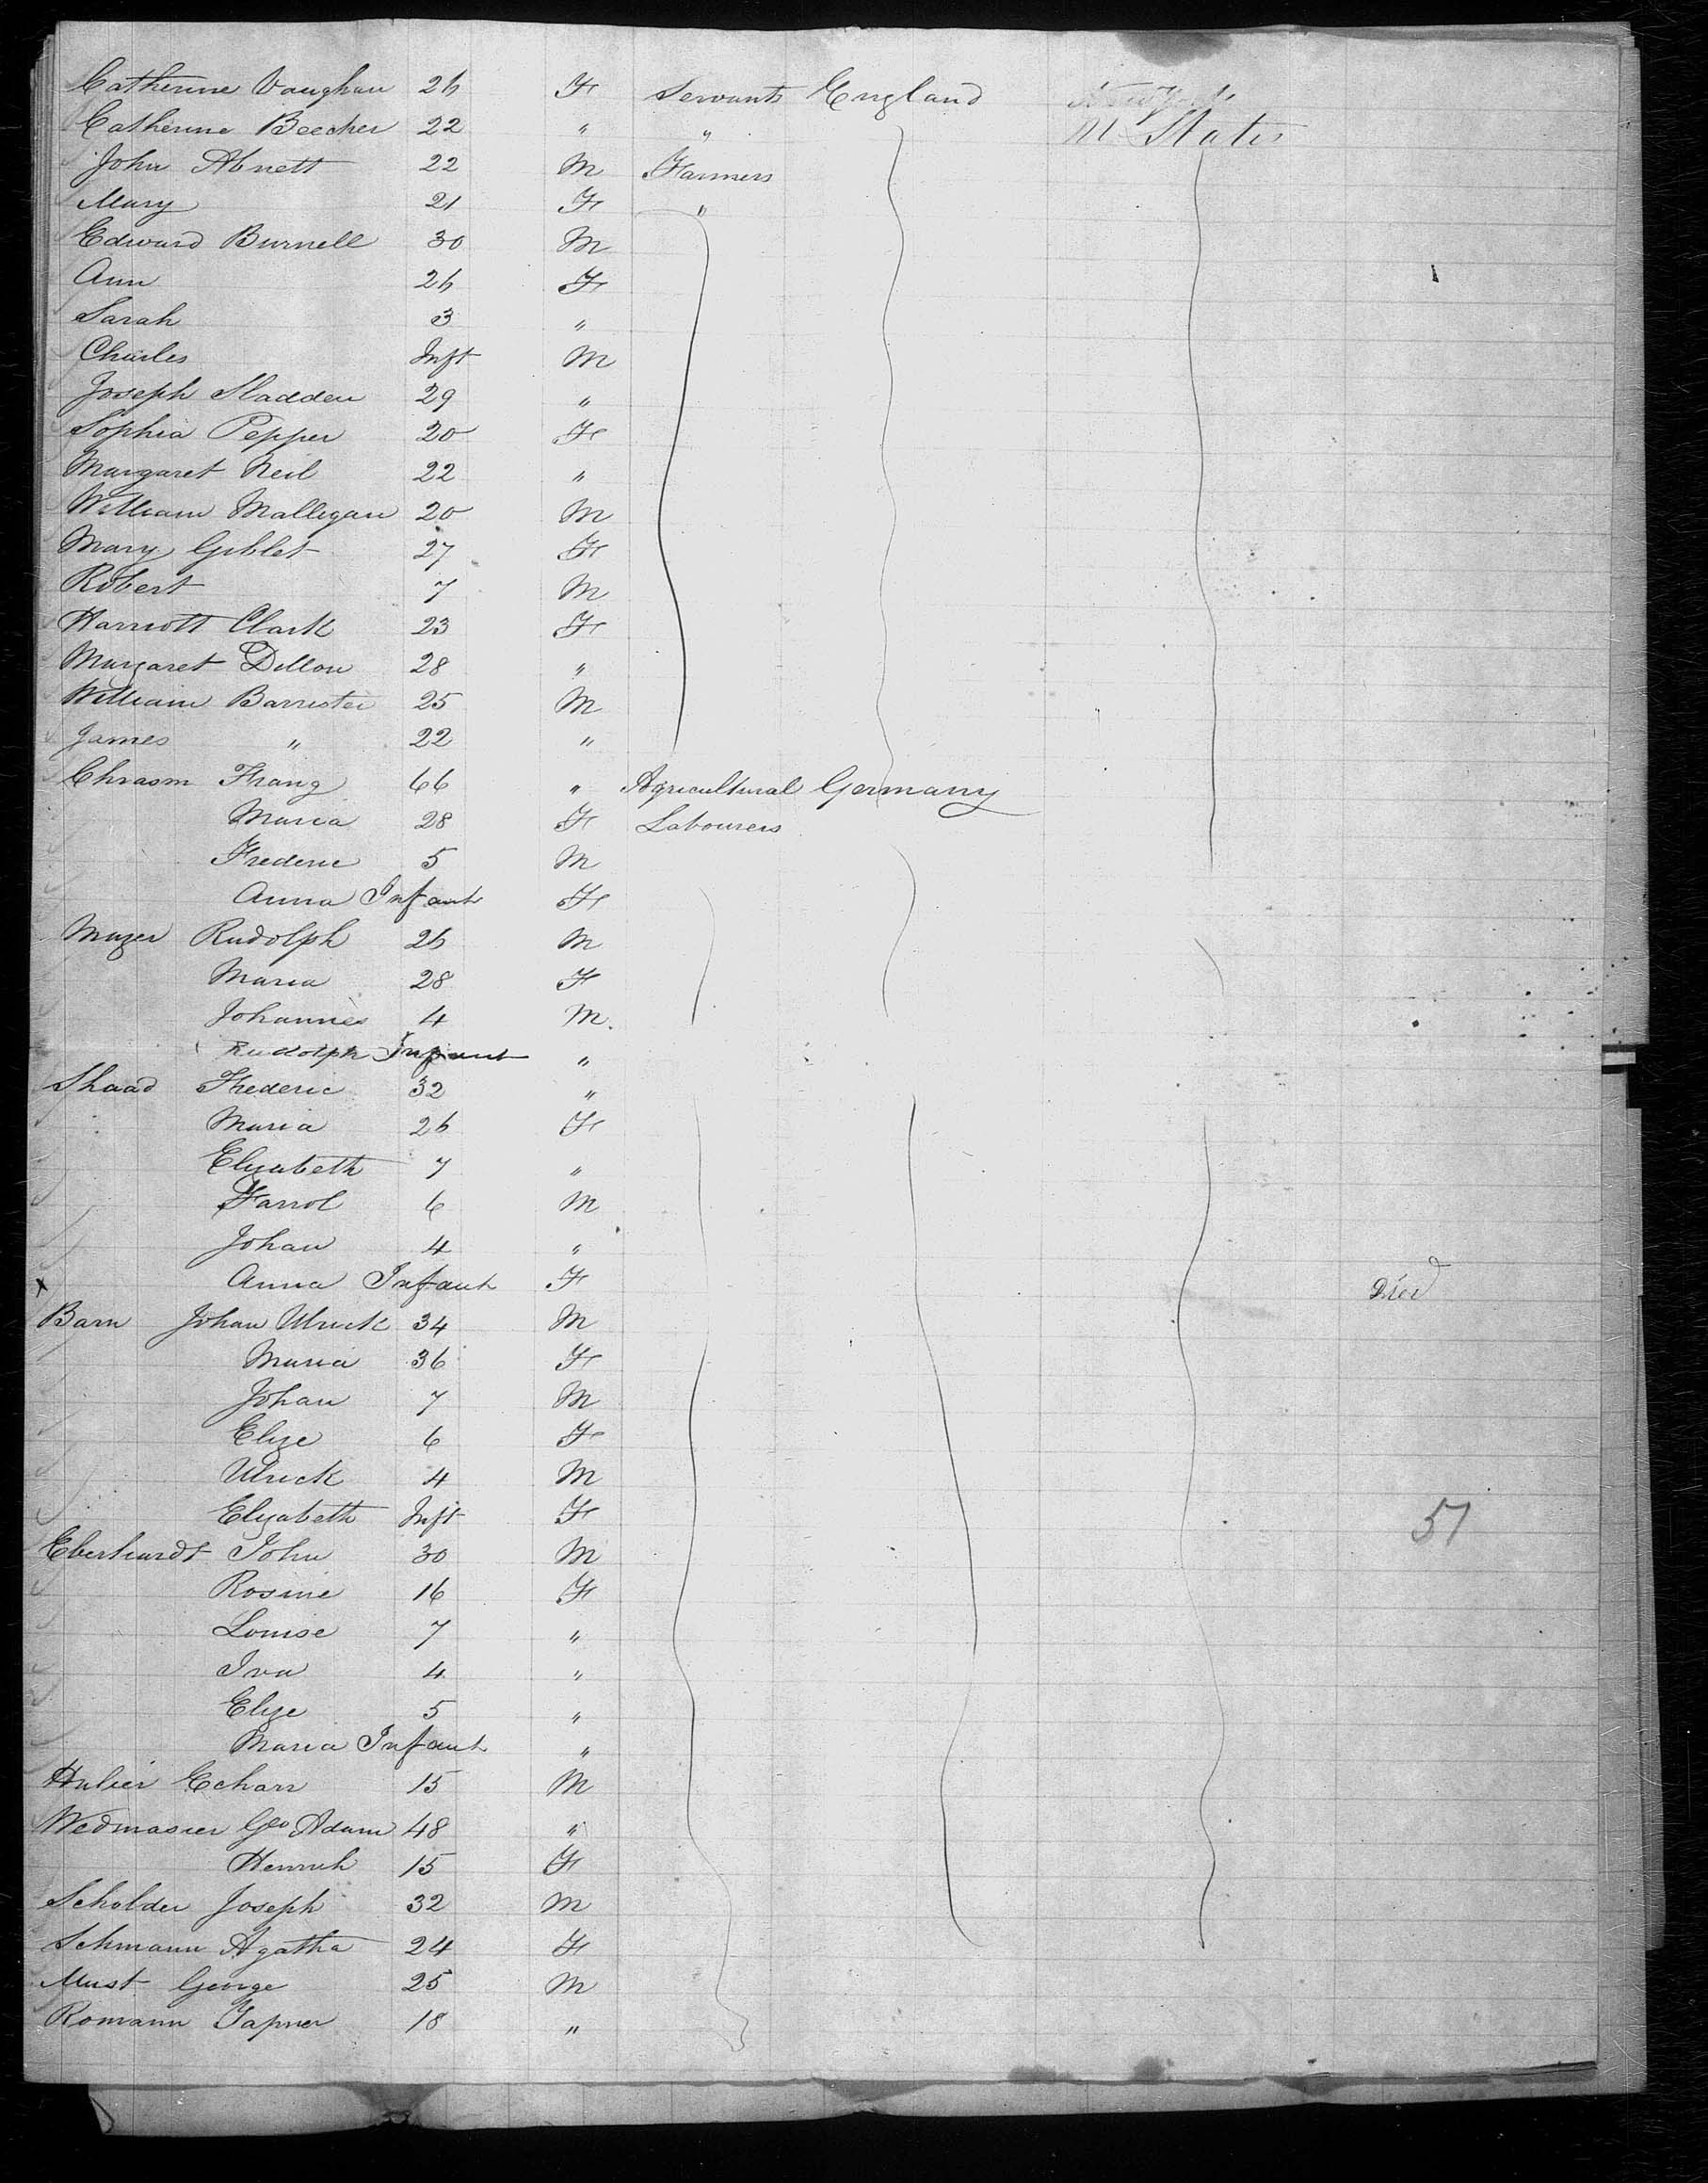 Catherine Vaughan 26 F Servants England New York
Catherine Beecher 22 " " U States
John Abnett 22 M Farmers
Mary 21 F "
Edward Burnell 30 M
Ann 26 F
Sarah 3 "
Charles Inft M
Joseph Sladden 29 "
Sophia Pepper 20 F
Margaret Neil 22 "
William Malligan 20 M
Mary Giblet 27 F
Robert 7 M
Harriott Clark 23 F
Margaret Dillon 28 "
William Barrister 25 M
James " 22 "
Chrasm Frang 66 " Agricultural Germany
Maria 28 F Labourers
Frederic 5 M
Anna Infant F
Muzer Rudolph 26 M
Maria 28 F
Johannes 4 M.
Rudolph Infant "
Shaad Frederic 32 "
Maria 26 F
Elizabeth 7 "
Farrol 6 M
Johan 4 "
x Anna Infant F Died
Barn Johan Ulrick 34 M
Maria 36 F
Johan 7 M
Elize 6 F
Ulrick 4 M
Elizabeth Inft F 51
Eberhardt John 30 M
Rosine 16 F
Louise 7 "
Iva 4 "
Elize 5 "
Maria Infant "
Hulier Echarr 15 M
Wedmasier Geo Adam 48 "
Henrich 15 F
Scholder Joseph 32 M
Schmann Agatha 24 F
Must George 25 M
Romann Tapner 18 "